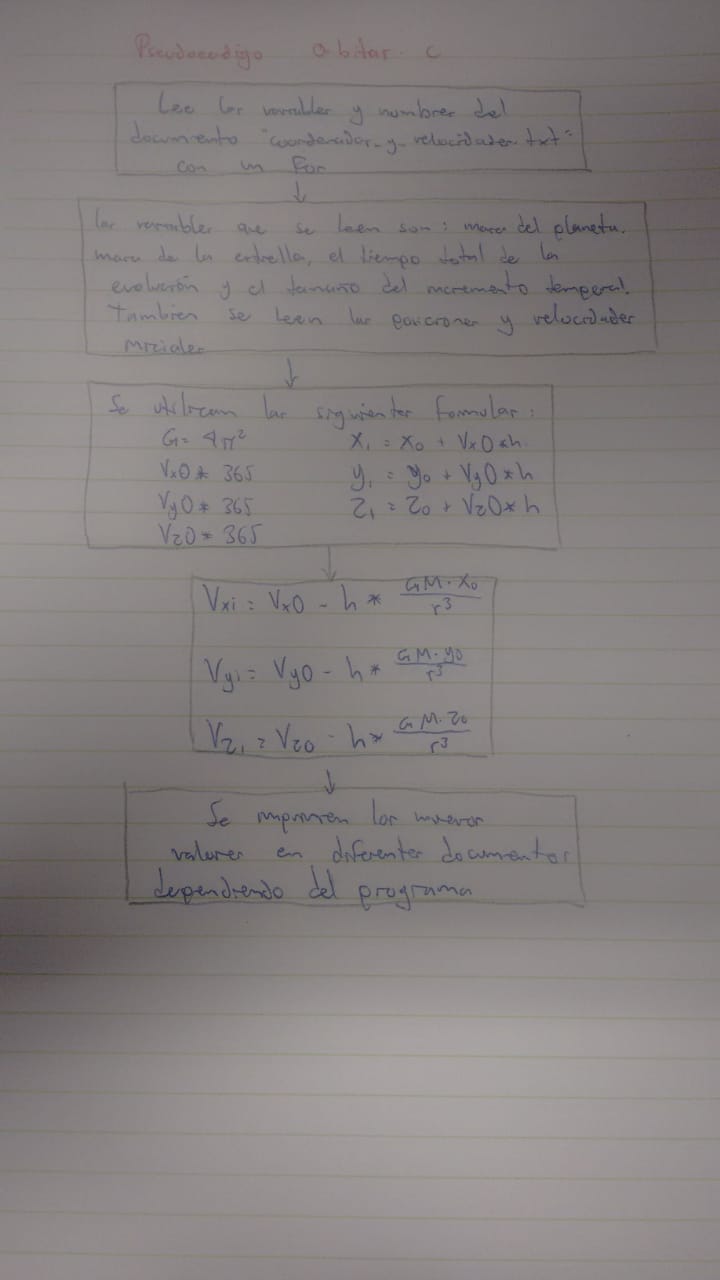 Pseudocodigo orbitar. c
Lee las variables y nombres del
documento "coordenadas_y_velocidades.txt"
con un For
↓
las variables que se leen son: masa del planeta,
masa de la estrella, el tiempo total de la
evolución y el tamaño del incremento temporal.
También se leen las posiciones y velocidades
iniciales
↓
Se utilizan las siguientes formulas:
G = 4π² X₁ = X₀ + Vx0*h
Vx0 * 365 y₁ = y₀ + Vy0*h
Vy0 * 365 Z₁ = Z₀ + Vz0*h
Vz0 * 365
↓
Vxi = Vx0 - h * GM·x₀/r³
Vyi = Vy0 - h * GM·y0/r³
Vz₁ = Vz0 - h * GM·z0/r³
↓
Se imprimen los nuevos
valores en diferentes documentos
dependiendo del programa